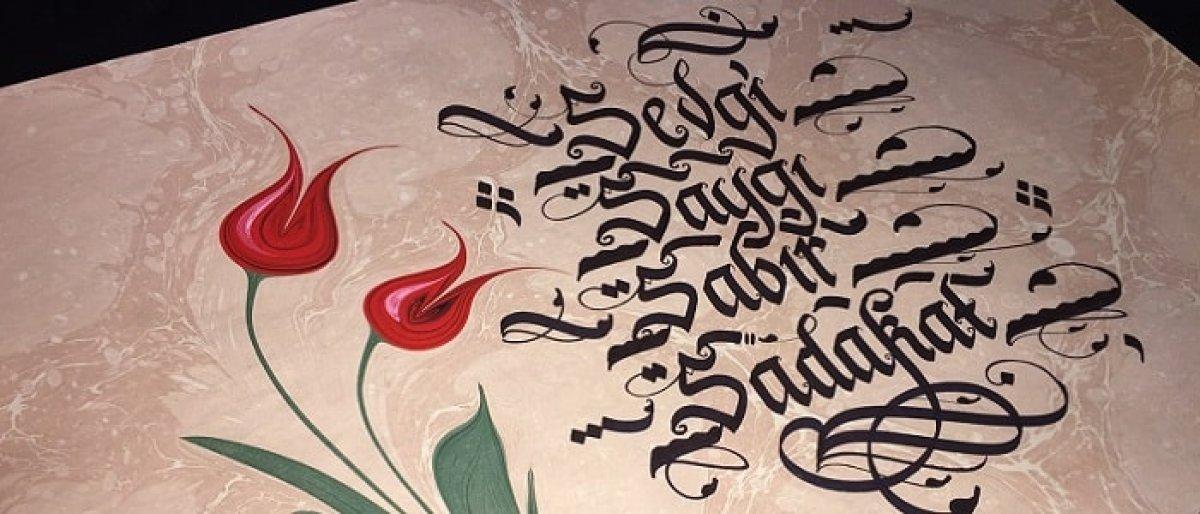 Sevgi
Saygı
Sabır
Sadakat